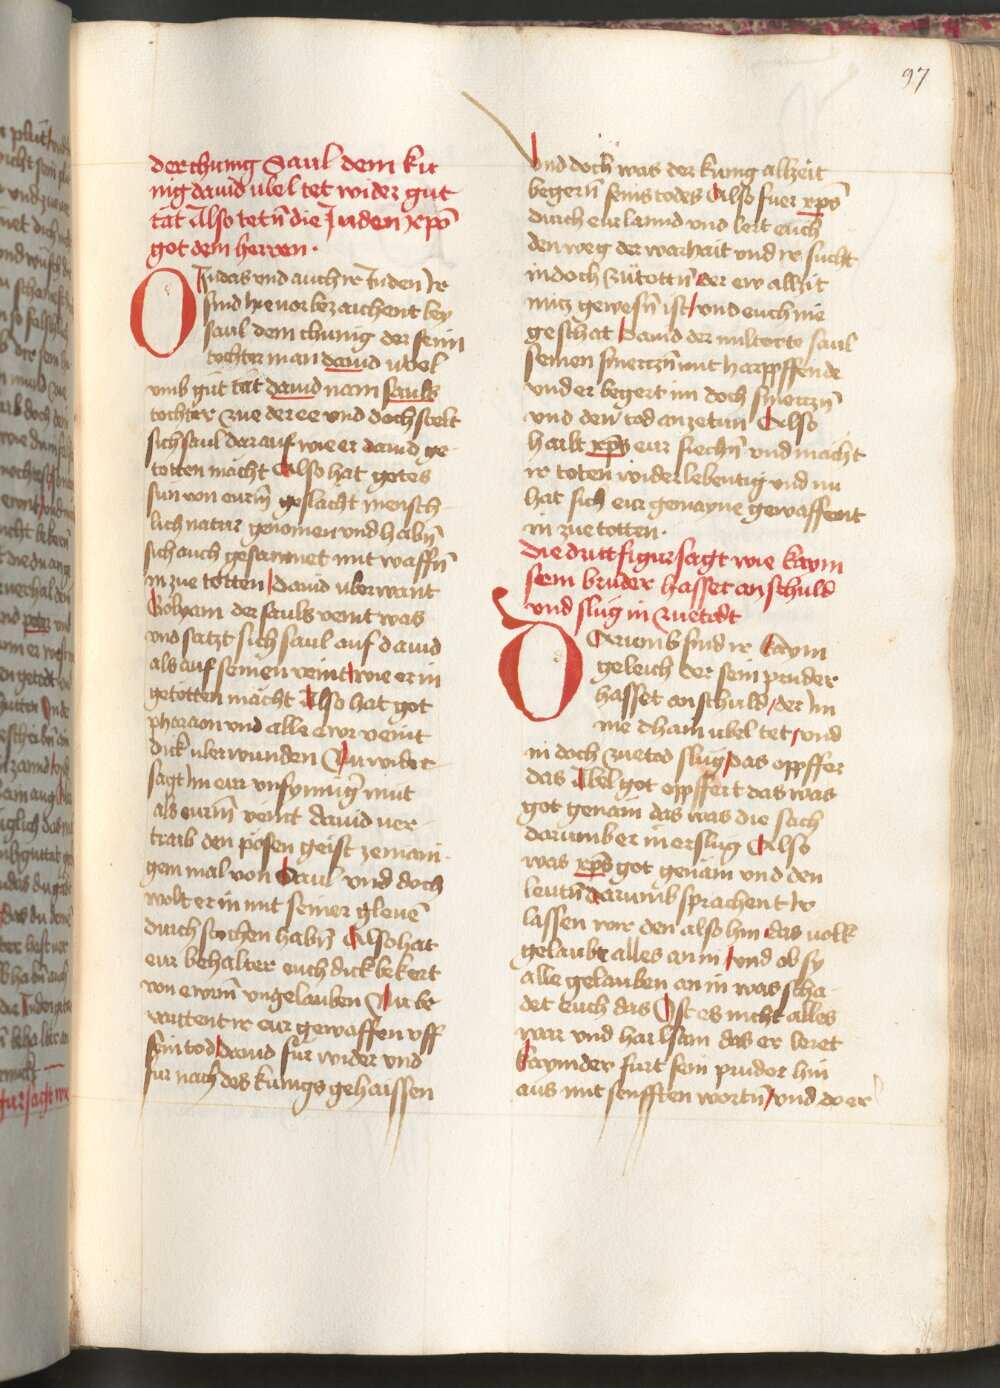 97
der chunig Saul dem kü
nig dauid vbel tet wider gut
tat Also tetn̄ die Juden xp̄o
got dem herren ·
O Judas vnd auch ir Juden Ir
sind hie vor bezaichent bey
saul dem chunig der seim
tochter man dauid vbel
vmb gut tat dauid nam sauls
tochter zue der ee vnd doch stelt
sich saul darauf wie er dauid ge
totten mächt Also hat gotes
sun von eurm̄ geslächt mensch
lich natur genomen vnd habn̄
sich auch gesammet mit waffn̄
in zue totten dauid vberwant
Golyam der sauls veint was
vnd satzt sich saul auf dauid
als auf seinen veint wie er in
getötten mächt Also hat got
pharaon vnd alle ewr veint
dick vberwunden Nu wider
sagt Im eur vnsynnig mut
als eurm̄ veint dauid ver
traib den pösen geist zemani
gem mal von Saul vnd doch
wolt er in mit seiner gleuē
durchstochen habn̄ Also hat
eur behalter euch dick bekert
von ewrm̄ vngelauben Nu be
raittent ir eur gewaffen vff
sein tod dauid fur wider vnd
fur nach des kunigs gehaissen
vnd doch was der kunig allzeit
begern̄ seins todes Also fuer xp̄s
durch eur lannd vnd lert euch
den weg der warhait vnd ir sucht
in doch zütöttn̄ der ew allzeit
nutz gewesn̄ ist vnd euch nie
geschat dauid der milterte saul
seinen smertzn̄ mit harpffende
vnd er begert im doch smertzn̄
vnd den tod anzetun Also
hailt xp̄s eur siechn̄ vnd macht
ir toten wider lebentig vnd nu
hat sich eur gemayne gewaffent
in zue totten ·
die dritt figur sagt wie kaym
sein bruder hasset an schuld
vnd slug in zuetodt
O Darumb sind ir kaym
geleich der sein pruder
hasset an schuld der Im
nie chain vbel tet vnd
in doch zuetod slug das oppffer
das Abel got oppffert das was
got genäm das was die sach
darumb er in erslug Also
was xp̄s got genäm vnd den
leutn̄ darumb sprachent Ir
lassen wir den also hin das volk
gelaubt alles an in vnd ob sy
alle gelauben an in was scha
det euch das Ist es nicht alles
war vnd hailsam das er leret
kaym der furt sein pruder hin
aus mit senfften wortn̄ vnd do er